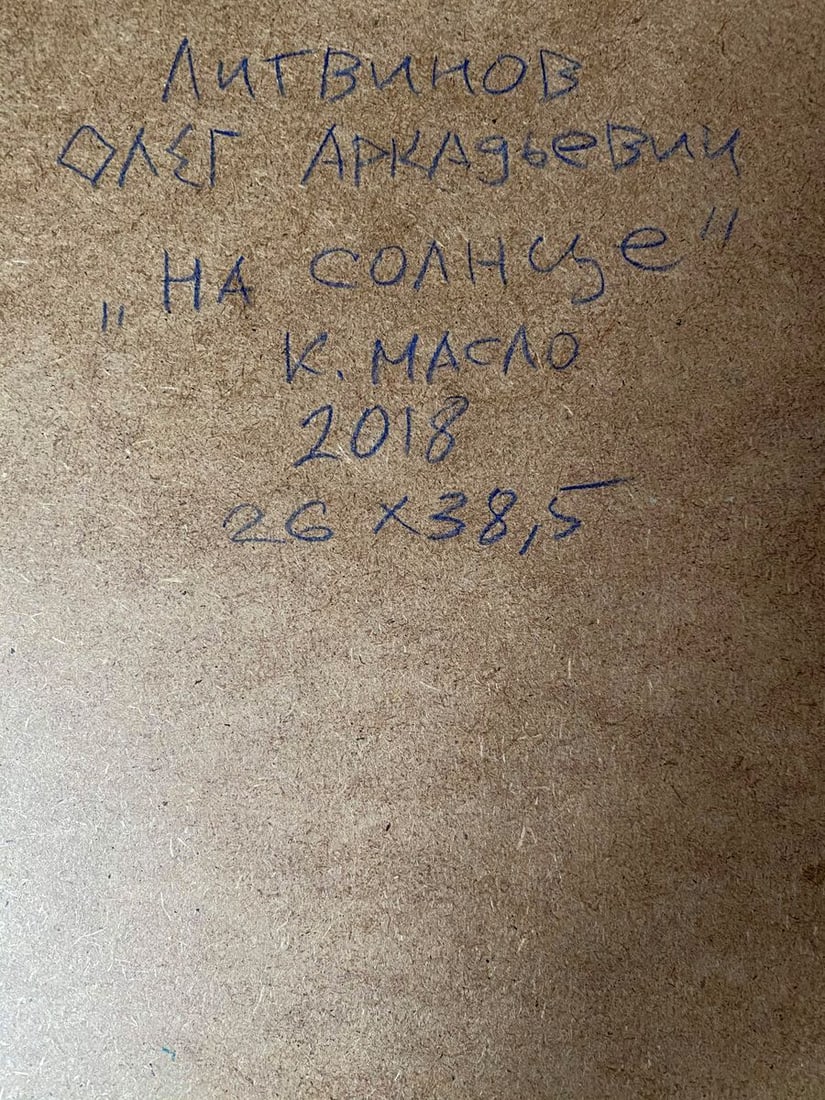 ЛИТВИНОВ
ОЛЕГ АРКАДЬЕВИЧ
„НА СОЛНЦЕ"
К. МАСЛО
2018
26 х 38,5